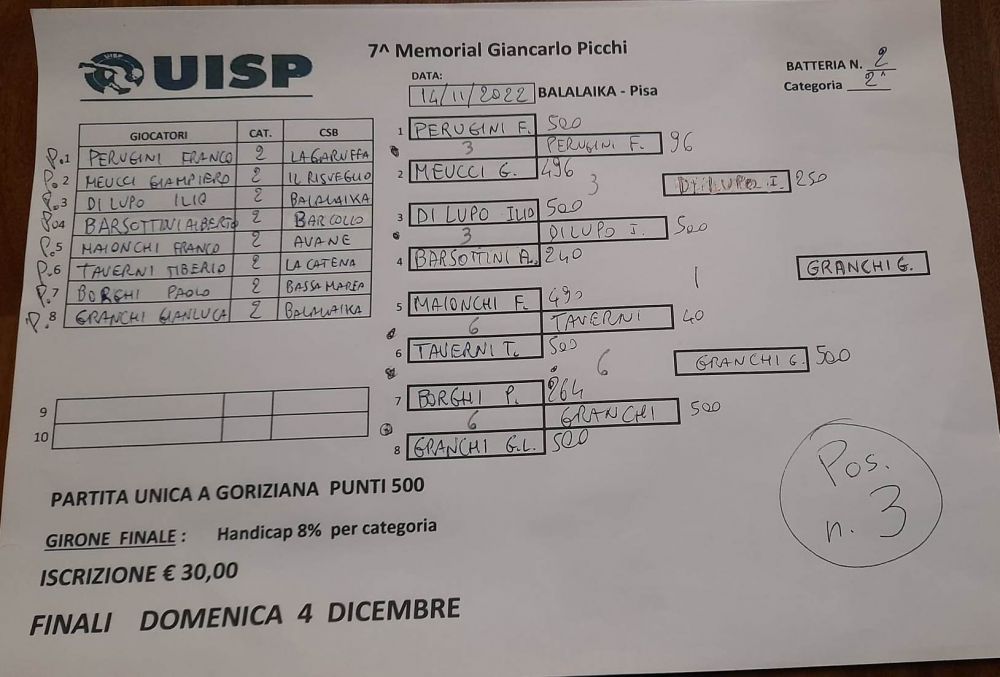 UISP
7^ Memorial Giancarlo Picchi
DATA:
14/11/2022 BALALAIKA - Pisa
BATTERIA N. 2
Categoria 2^
GIOCATORI CAT. CSB
P.1 PERUGINI FRANCO 2 LA GARUFFA
P.2 MEUCCI GIAMPIERO 2 IL RISVEGLIO
P.3 DI LUPO ILIO 2 BALALAIKA
P.4 BARSOTTINI ALBERTO 2 BARCOLLO
P.5 MAIONCHI FRANCO 2 AVANE
P.6 TAVERNI TIBERIO 2 LA CATENA
P.7 BORGHI PAOLO 2 BASSA MAREA
P.8 GRANCHI GIANLUCA 2 BALALAIKA
9
10
1 PERUGINI F. 500
3 PERUGINI F. 96
2 MEUCCI G. 496
3 DI LUPO I. 250
3 DI LUPO ILIO 500
3 DI LUPO I. 500
4 BARSOTTINI A. 240
1 GRANCHI G.
5 MAIONCHI F. 490
6 TAVERNI 40
6 TAVERNI T. 500
6 GRANCHI G. 500
7 BORGHI P. 264
6 GRANCHI 500
8 GRANCHI G.L. 500
Pos.
n. 3
PARTITA UNICA A GORIZIANA PUNTI 500
GIRONE FINALE : Handicap 8% per categoria
ISCRIZIONE € 30,00
FINALI DOMENICA 4 DICEMBRE